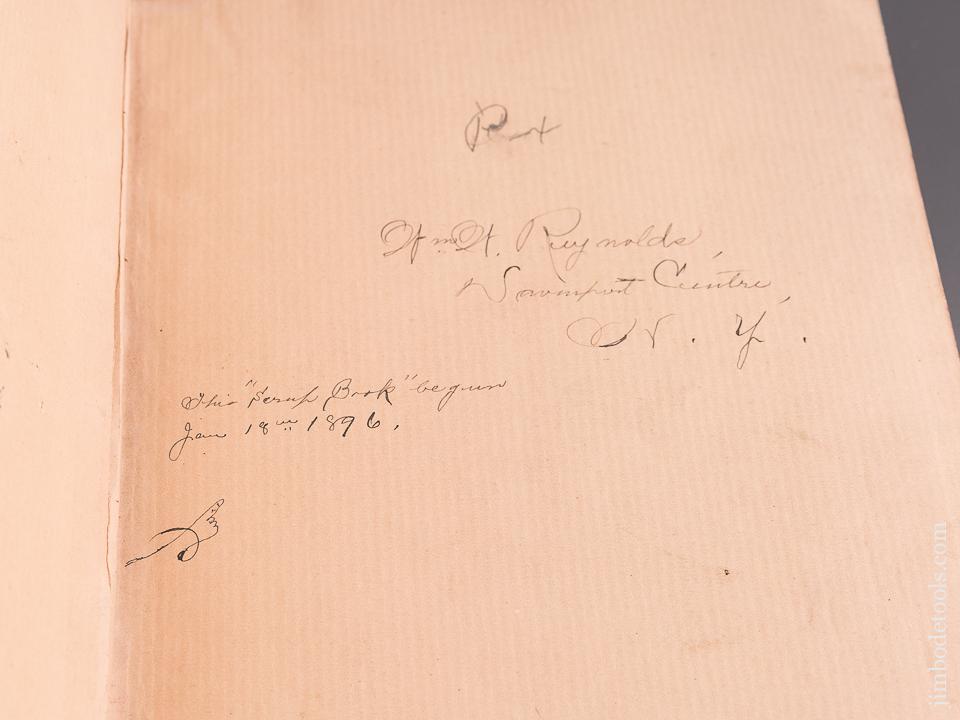 Wm H. Reynolds,
Davenport Centre,
N. Y.
This "Scrap Book" begun
Jan 18th 1896.
jimbodetools.com